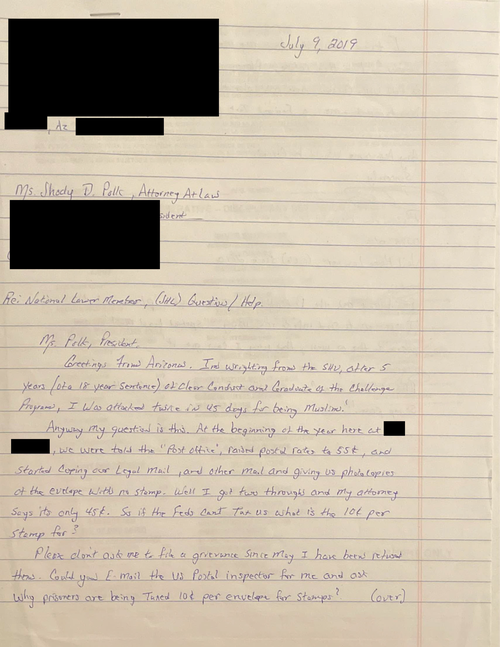 July 9, 2019
, Az
Ms. Shody D. Polk, Attorney At Law
sident
Re: National Lawer Member, (JHL) Question/Help.
Ms. Polk, President,
Greetings from Arizona. Im wrighting from the SHU, after 5
years (of a 18 year sentence) of Clear Conduct and Graduate of the Challenge
Program, I was attacked twice in 45 days for being Muslim!
Anyway my question is this. At the beginning of the year here at
, we were told the "Post Office", raised postal rates to 55¢, and
started Coping our Legal mail, and other mail and giving us photocopies
of the evelope with no stamp. Well I got two through and my attorney
says its only 45¢. So if the Feds Cant Tax us what is the 10¢ per
stamp for?
Please don't ask me to file a grievance since May I have been refused
them. Could you E-mail the US Postal inspector for me and ask
Why prisoners are being Taxed 10¢ per envelope for Stamps? (over)